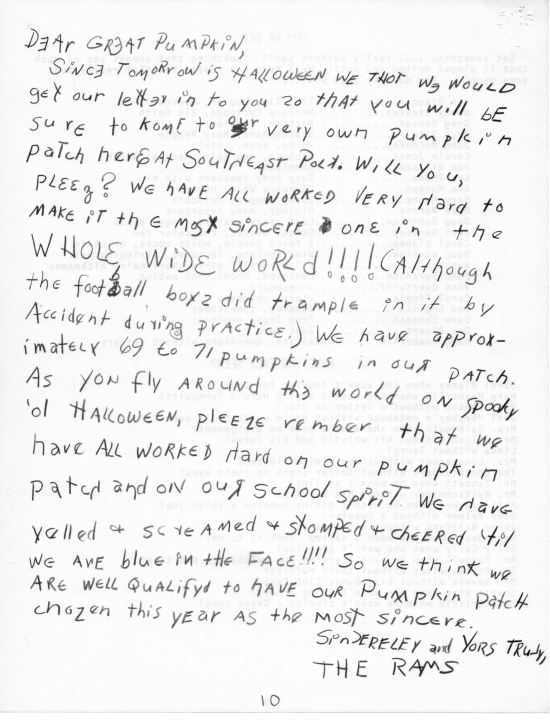 DEAr GREAT PuMPKIN,
SINCE TOMORROW iS HALLOWEEN WE THOT WE WOULD
get our letter in to you zo tHAt you will bE
sure to komE to our very own Pumpkin
PatcH herE At SoutHEAST POLK. Will You,
PLEEz? WE HAVE ALL WORKED VERY Hard to
MAKE iT tHE Most sincere one in the
WHOLE WiDE WORLd!!!!! (Although
the football boyz did trample in it by
Accident during practice.) We have approx-
imately 69 to 71 pumpkins in our PATCH.
As you fly AROUND the world ON spooky
'ol HALLOWEEN, pLEEzE rember that we
have ALL WORKED Hard on our pumpkin
patcH and oN our school spirit. We Have
yelled & screamed & stomped & cheered 'til
WE ArE blue in tHE FACE!!!! So we think we
ARE WELL QUALIFyd to HAVE OUR PumpKin PatcH
chozen this year As the most sincere.
SiNDERELEY and YORS TRuly,
THE RAMS
10